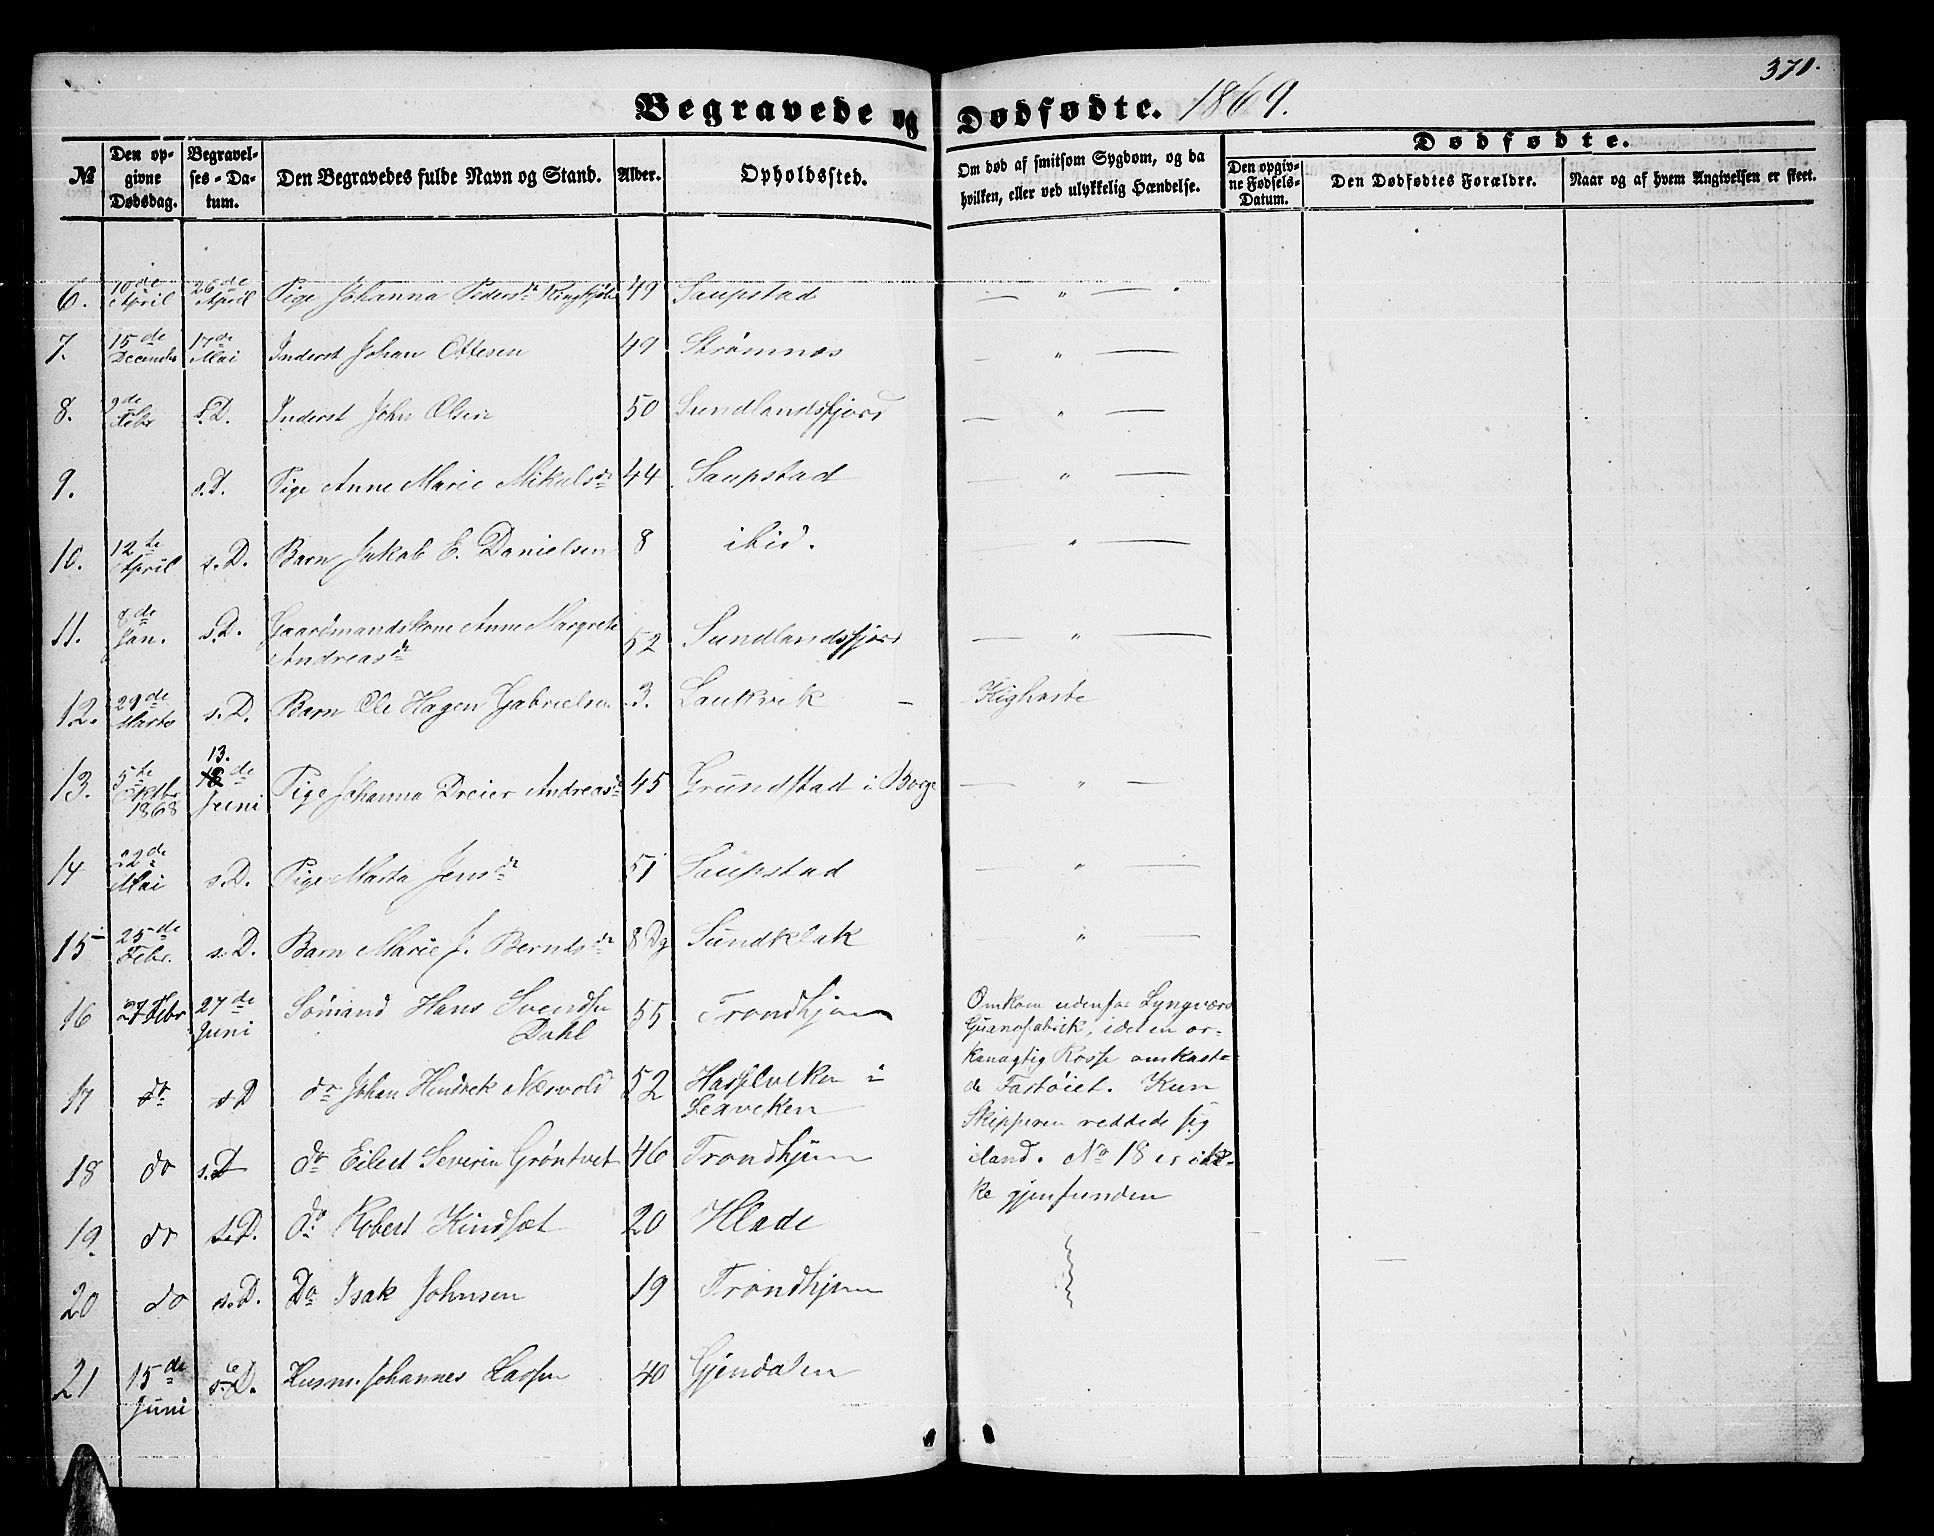 371.
Begravede og Dødfødte. 1869.
№
Den opgivne Dødsdag.
Begravelses-Datum.
Den Begravedes fulde Navn og Stand.
Alder.
Opholdssted.
Om død af smitsom Sygdom, og da hvilken, eller ved ulykkelig Hændelse.
Dødfødte.
Den opgivne Fødsels-Datum.
Den Dødfødtes Forældre.
Naar og af hvem Angivelsen er skeet.
6. 10de April 26de April Pige Johanna Pedersdr 49 Saupstad — " —
7. 15de December 17de Mai Inderst Johan Ottesen 49 Strømnæs — " —
8. 9de Febr s.D. Inderst John Olsen 50 Sundlandsfjord — " —
9. s.D. Pige Anne Marie Mikalsdr 44 Saupstad " —
10. 12te April s.D. Barn Jakob E. Danielsen 8 ibid. — " —
11. 8de Jan. s.D. Gaardmandskone Anne Margrete Andreasdr 52 Sundlandsfjord — " —
12. 29de Marts s.D. Barn Ole Hagen Gabrielsen 3. Laukvik — Kighoste
13. 5te Oktbr 1868 13. 12de Juni Pige Johanna Dreier Andreasdr 45 Grundstad i Borge — " —
14 22de Mai s.D. Pige Marta Jensdr 51 Saupstad — " —
15 25de Febr. s.D. Barn Marie J. Berndsdr 8 Dg Sundklak — " —
16 27 Febr 27de Juni Sømand Hans Svendsen Dahl 55 Trondhjem
17 do s.D do Johan Hindrek Nærvold 52 Hasselvken i Lexveken
18 do s.D do Eilert Severin Grøntvet 46 Trondhjem
19. do s.D. do Robert Kindsæt 20 Hlade
20 do s.D. Do Isak Johnsen 19 Trondhjem
Omkom udenfor Lyngvær
Guanofabrik, idet en or-
kanagtig Rosse omkaste-
de Fartøiet. Kun
Skipperen reddede sig
iland. No 18 er ik-
ke gjenfunden
21 15de Juni s.D. Husm. Johannes Larsen 40 Gjendalen